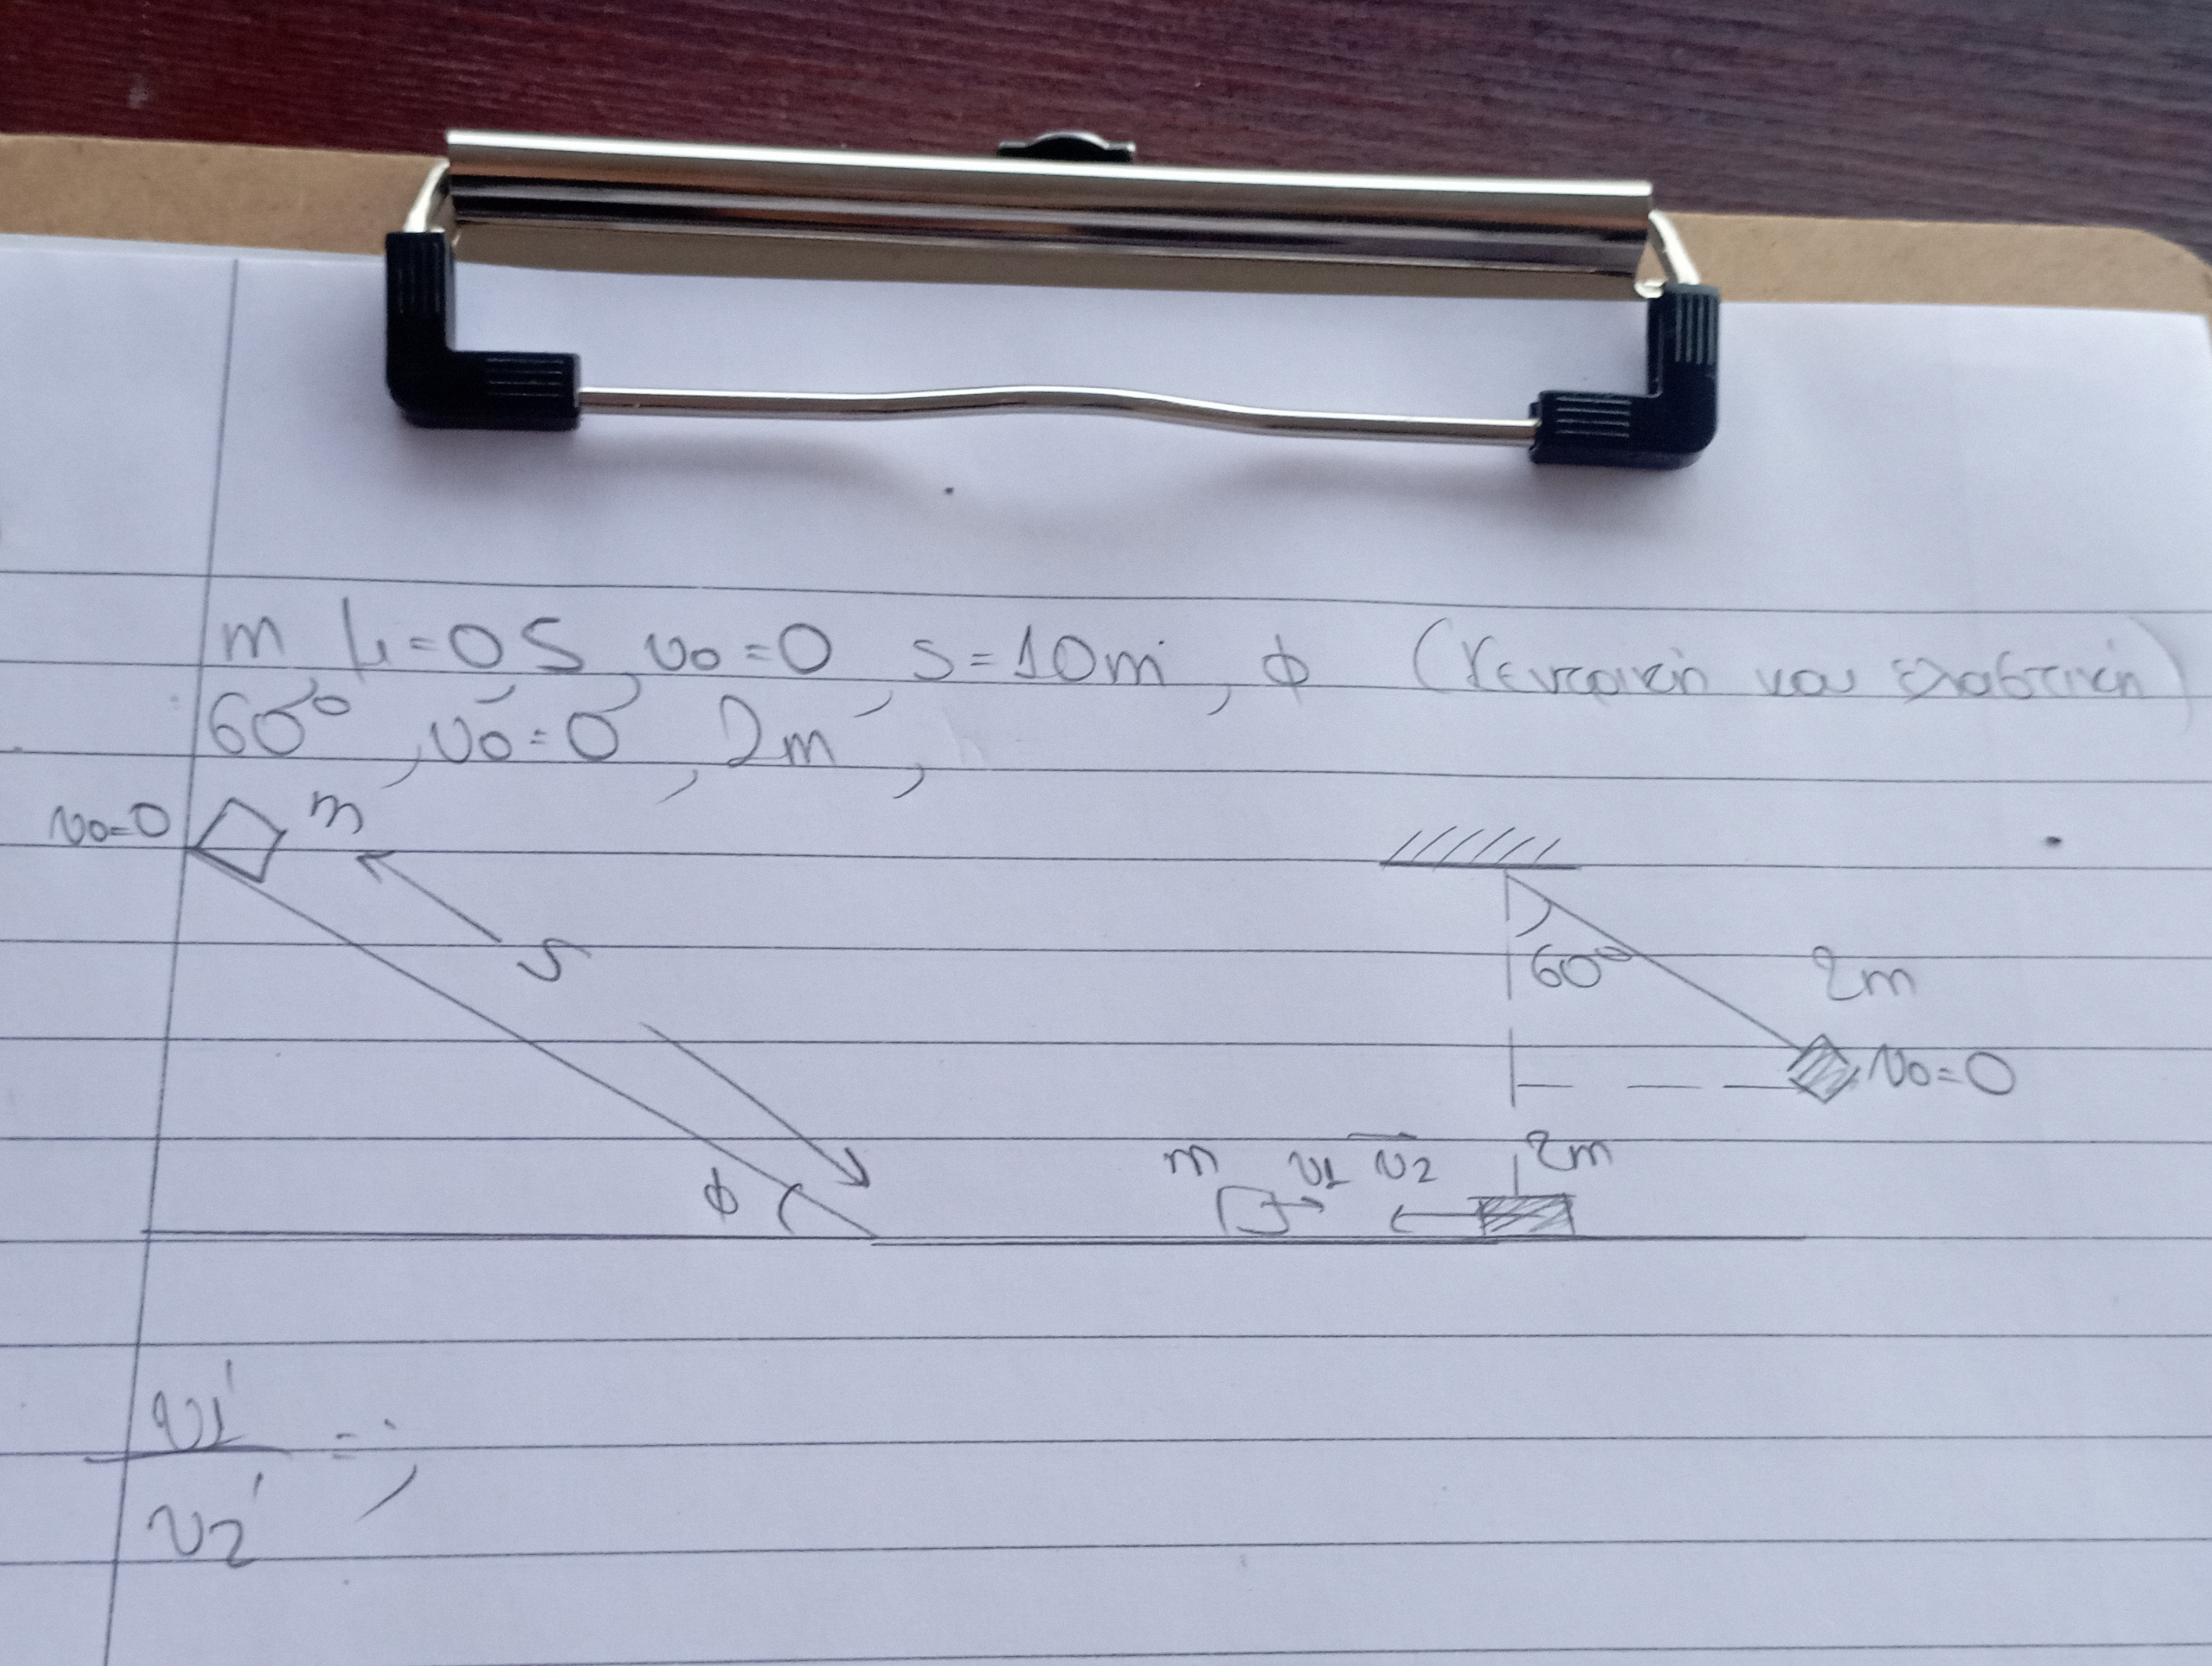 m, μ=0,5, υ₀=0, s=10m, φ (Κεντρική και ελαστική)
60°, υ₀=0, 2m,
υ₀=0 m
S
60°
2m
υ₀=0
φ
m υ1 υ2 2m
υ1'
=;
υ2'